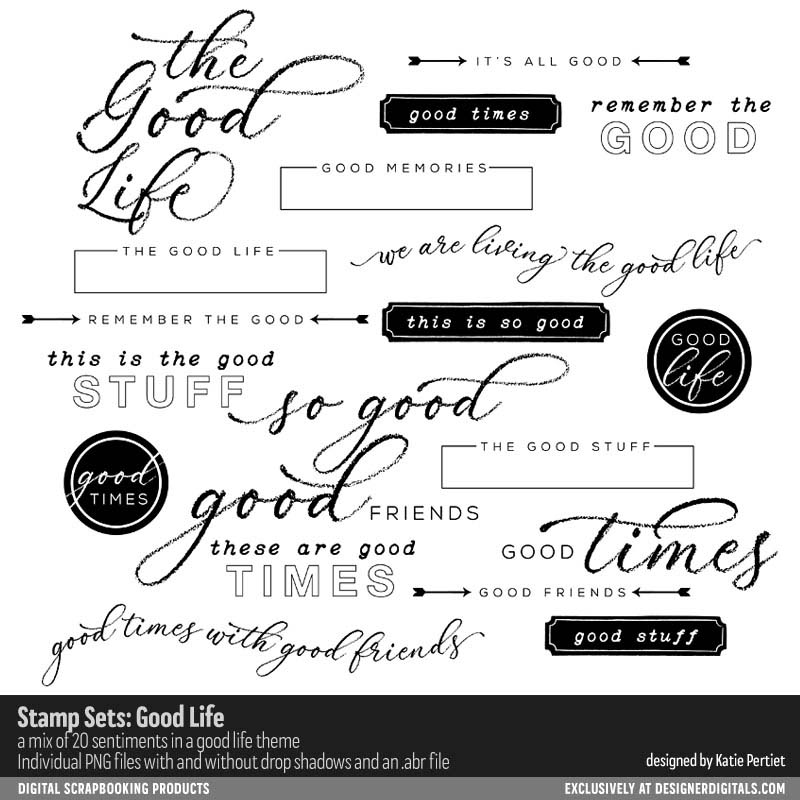 the
Good
Life
IT'S ALL GOOD
good times
remember the
GOOD
GOOD MEMORIES
THE GOOD LIFE
we are living the good life
REMEMBER THE GOOD
this is so good
GOOD
life
this is the good
STUFF
so good
THE GOOD STUFF
good
TIMES
good FRIENDS
GOOD times
these are good
TIMES
GOOD FRIENDS
good times with good friends
good stuff
Stamp Sets: Good Life
a mix of 20 sentiments in a good life theme
Individual PNG files with and without drop shadows and an .abr file
designed by Katie Pertiet
DIGITAL SCRAPBOOKING PRODUCTS
EXCLUSIVELY AT DESIGNERDIGITALS.COM